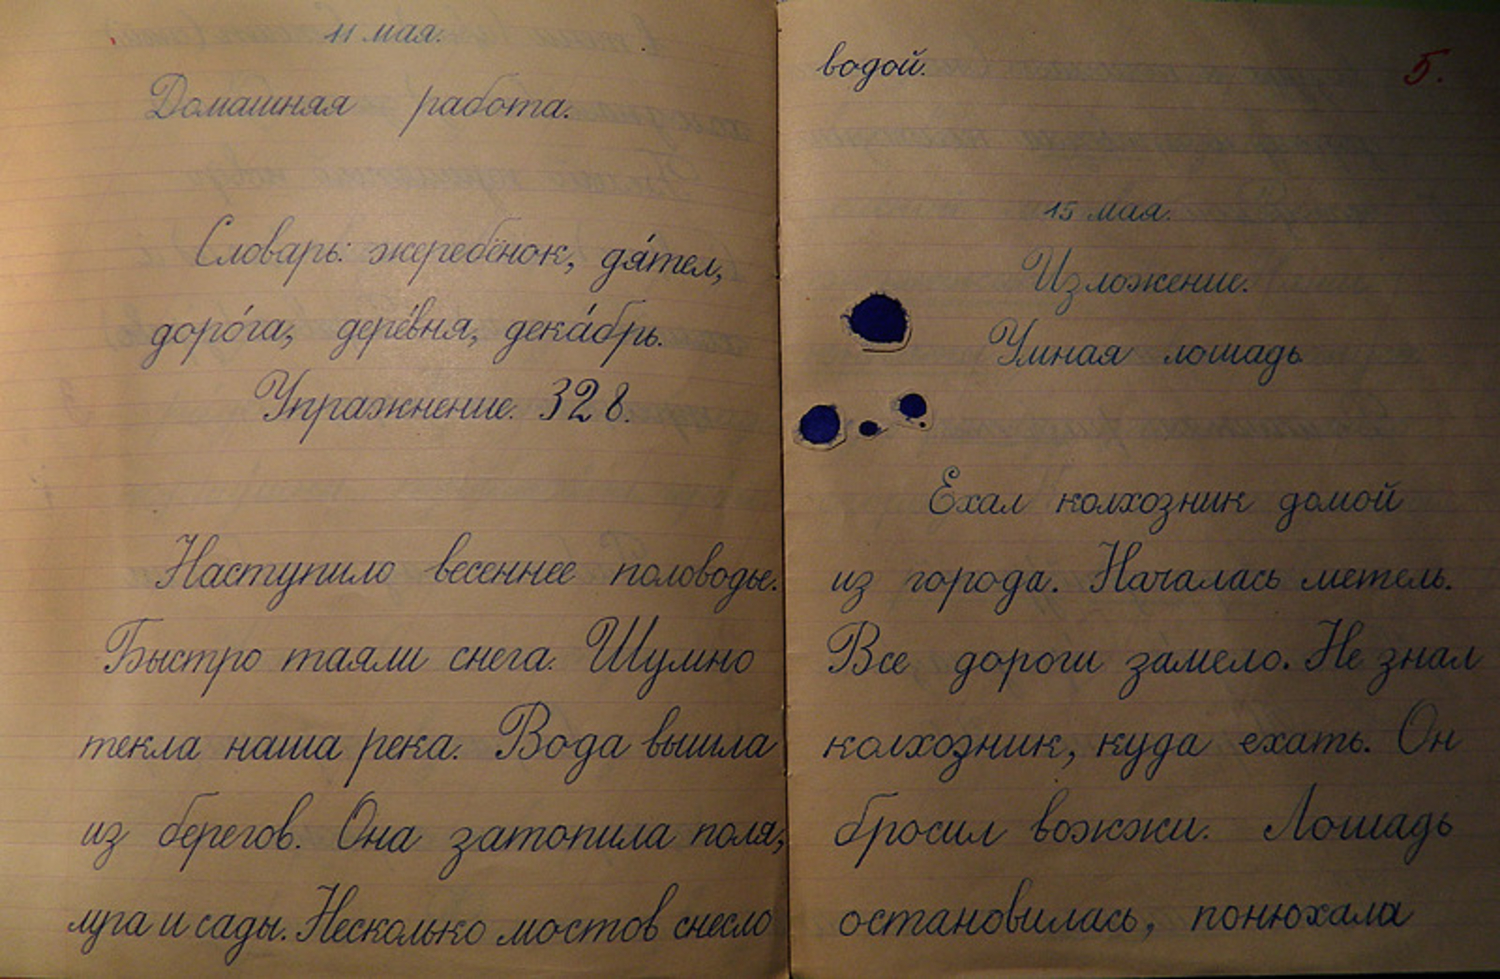 11 мая.
Домашняя работа.
Словарь: жеребёнок, дя́тел,
доро́га, дере́вня, дека́брь.
Упражнение 328.
Наступило весеннее половодье.
Быстро таяли снега. Шумно
текла наша река. Вода вышла
из берегов. Она затопила поля,
луга и сады. Несколько мостов снесло
водой.
5.
15 мая.
Изложение.
Умная лошадь
Ехал колхозник домой
из города. Началась метель.
Все дороги замело. Не знал
колхозник, куда ехать. Он
бросил вожжи. Лошадь
остановилась, понюхала